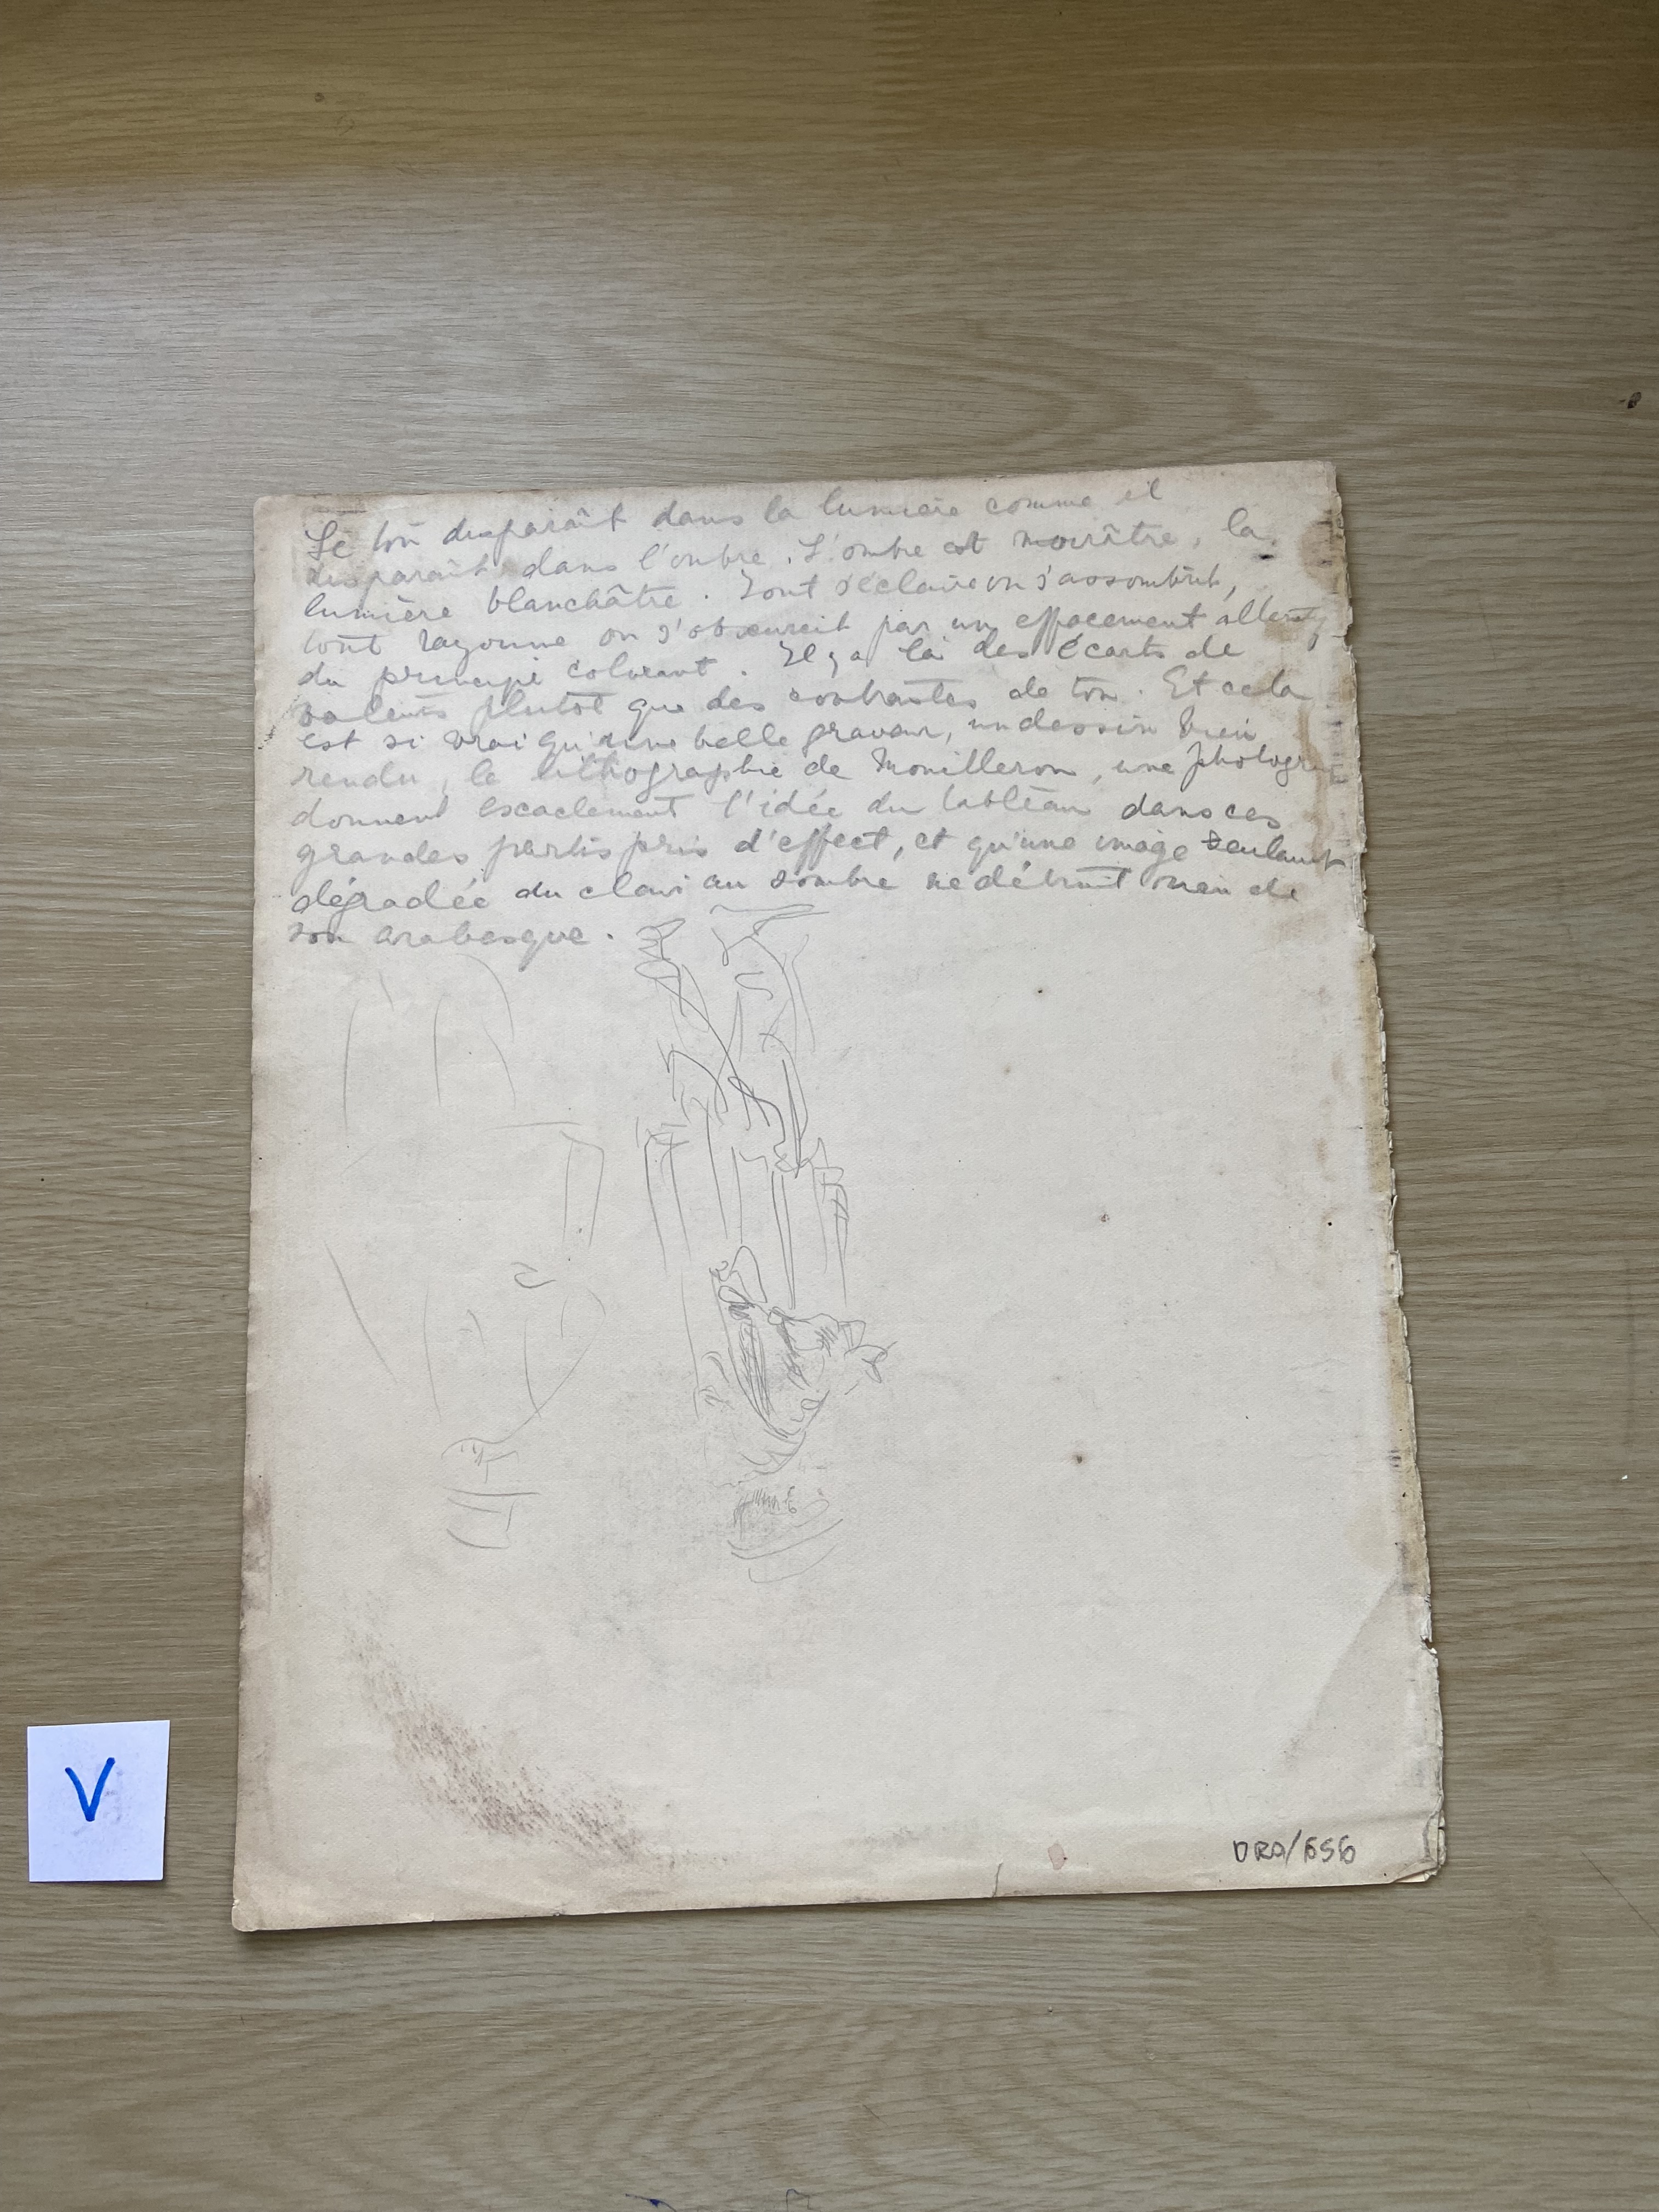 Le ton disparaît dans la lumière comme il
disparaît dans l'ombre. L'ombre est noirâtre, la
lumière blanchâtre. Tout s'éclaire ou s'assombrit,
tout rayonne ou s'obscurcit par un effacement
du principe colorant. Il y a là des écarts de
valeurs plutôt que des contrastes de ton. Et cela
est si vrai qu'une belle gravure, un dessin bien
rendu, la lithographie de Mouilleron, une photogr
donnent exactement l'idée du tableau dans ces
grandes partis pris d'effect, et qu'une image seulement
dégradée du clair au sombre ne détruit rien de
son arabesque.
V
DRD/656